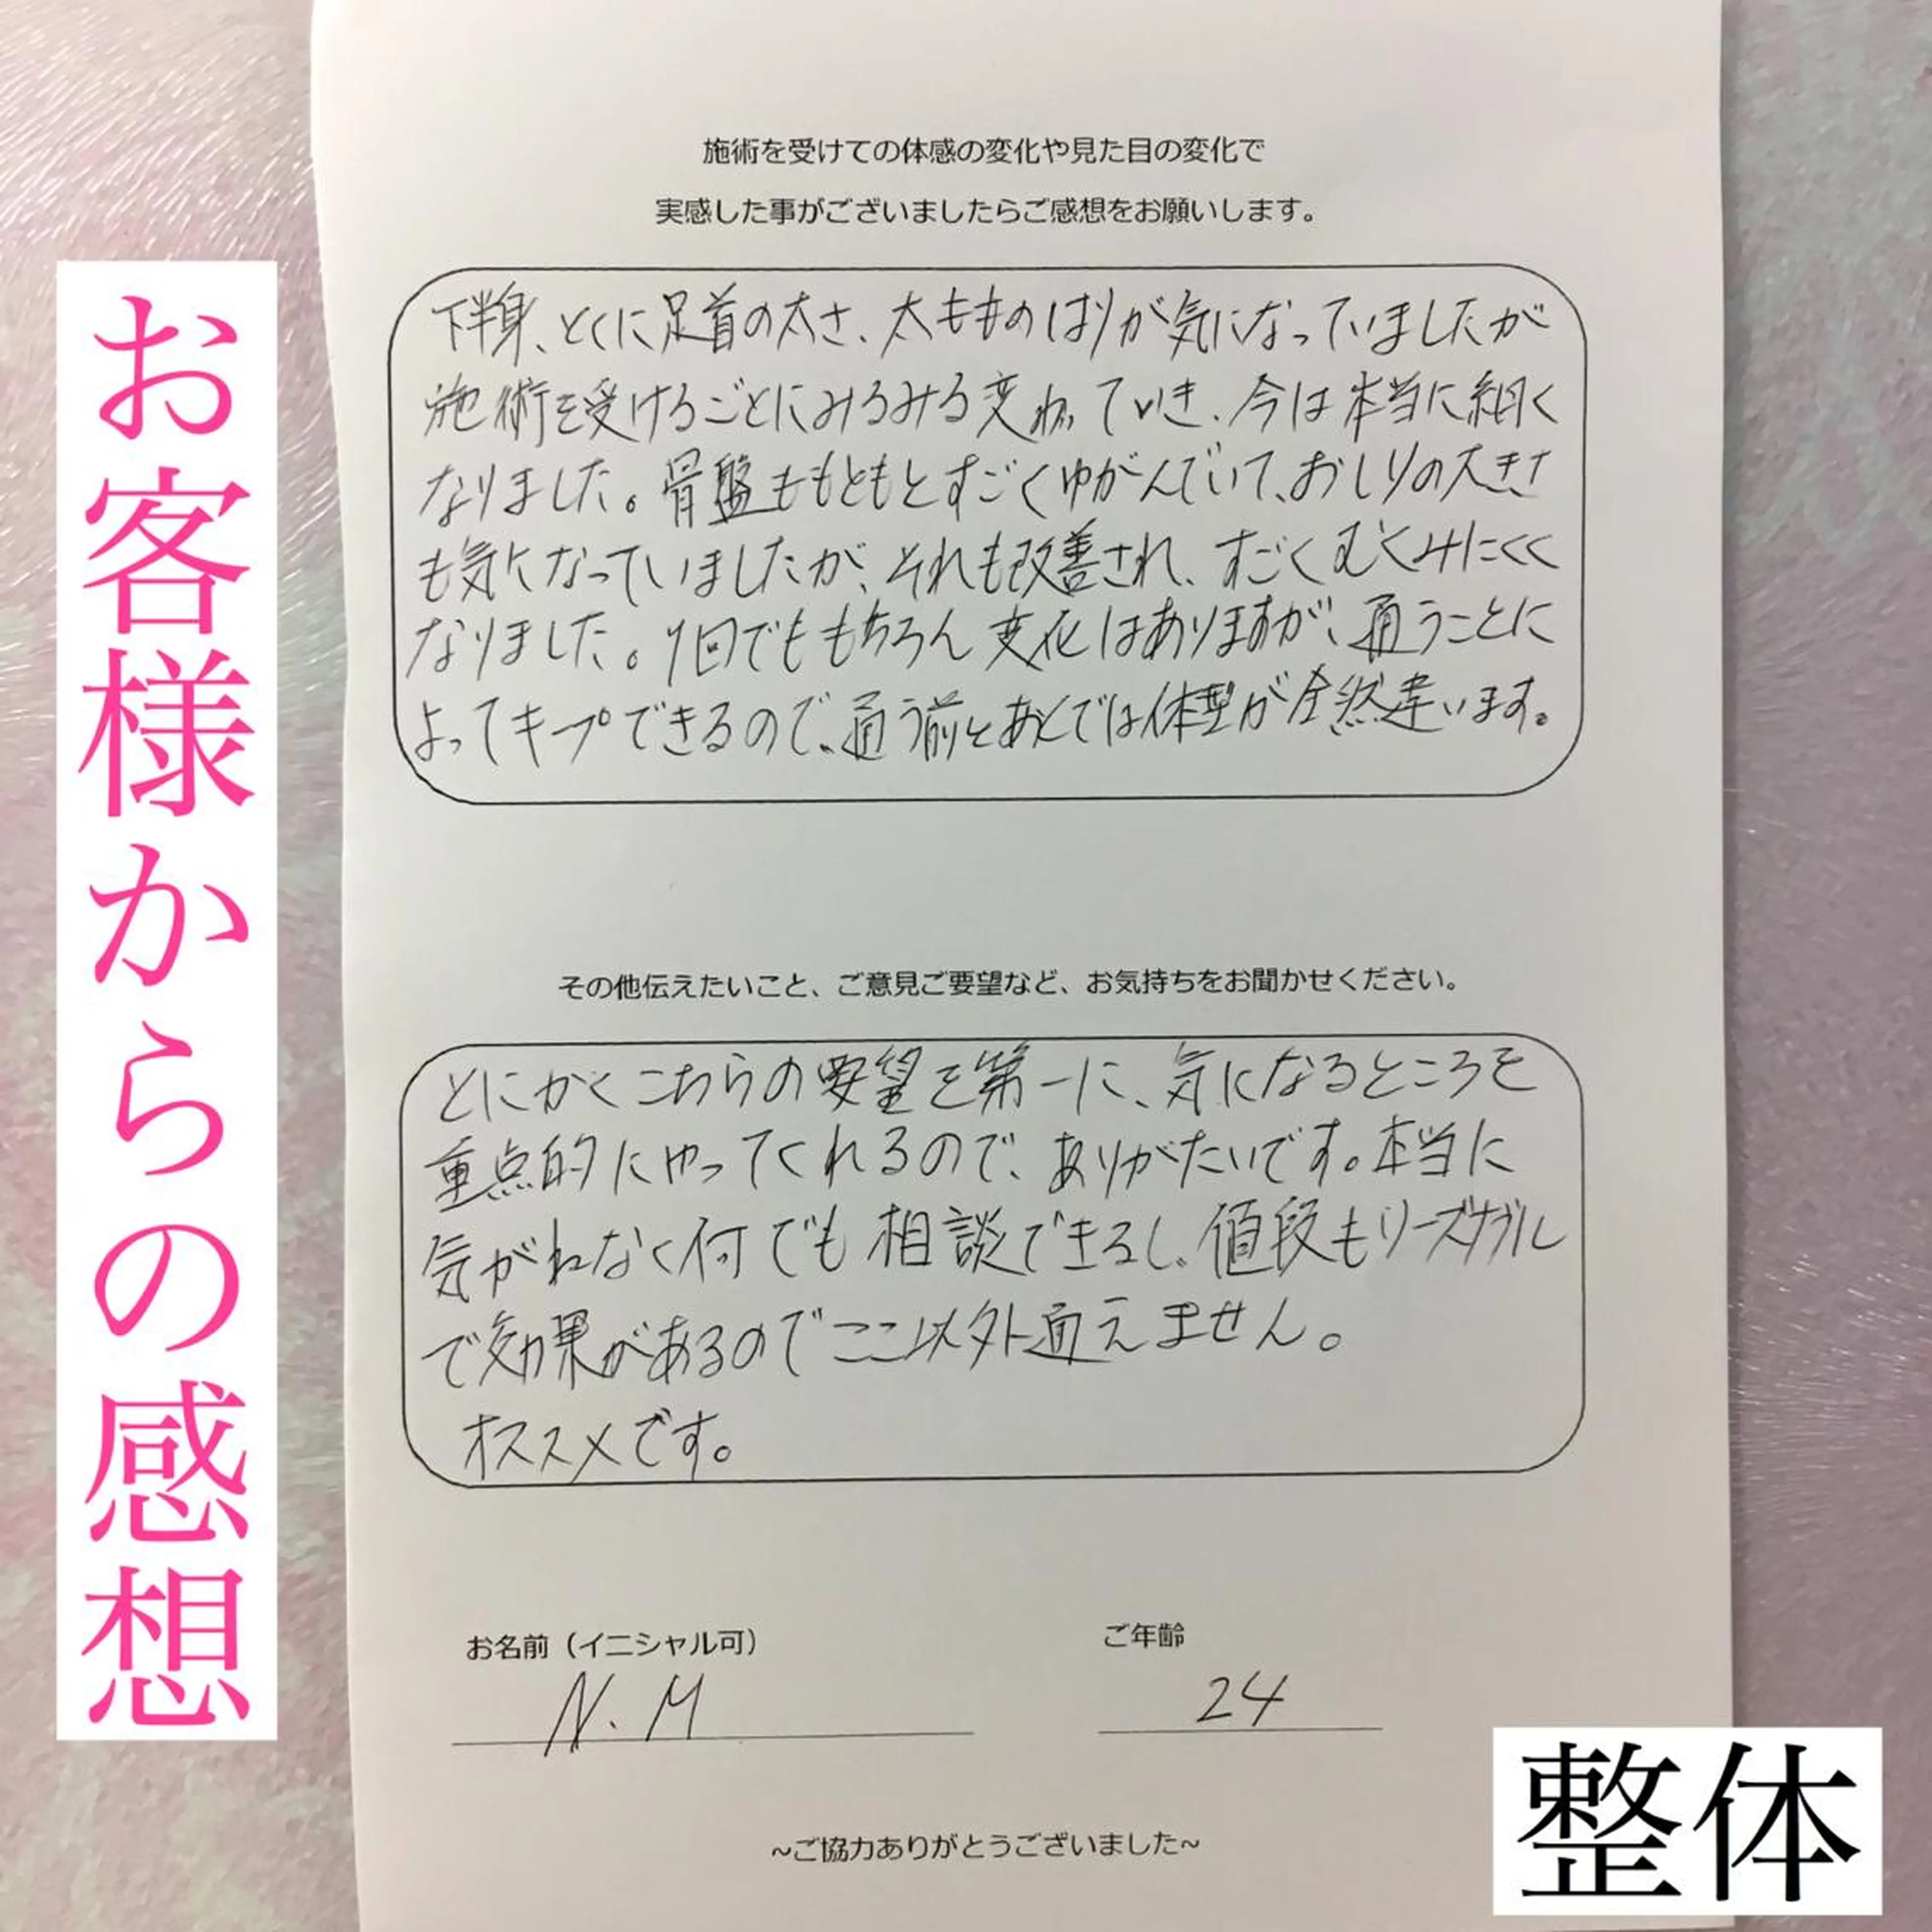 お客様からの感想
施術を受けての体感の変化や見た目の変化で
実感した事がございましたらご感想をお願いします。
下半身、とくに足首の太さ、太もものはりが気になっていましたが
施術を受けるごとにみるみる変わっていき、今は本当に細く
なりました。骨盤ももともとすごくゆがんでいて、おしりの大きさ
も気になっていましたが、それも改善され、すごくむくみにくく
なりました。1回でももちろん変化はありますが、通うことに
よってキープできるので、通う前とあとでは体型が全然違います。
その他伝えたいこと、ご意見ご要望など、お気持ちをお聞かせください。
とにかくこちらの要望を第一に、気になるところを
重点的にやってくれるので、ありがたいです。本当に
気がねなく何でも相談できるし、値段もリーズナブル
で効果があるのでここ以外通えません。
オススメです。
お名前（イニシャル可） ご年齢
N.M 24
~ご協力ありがとうございました~
整体